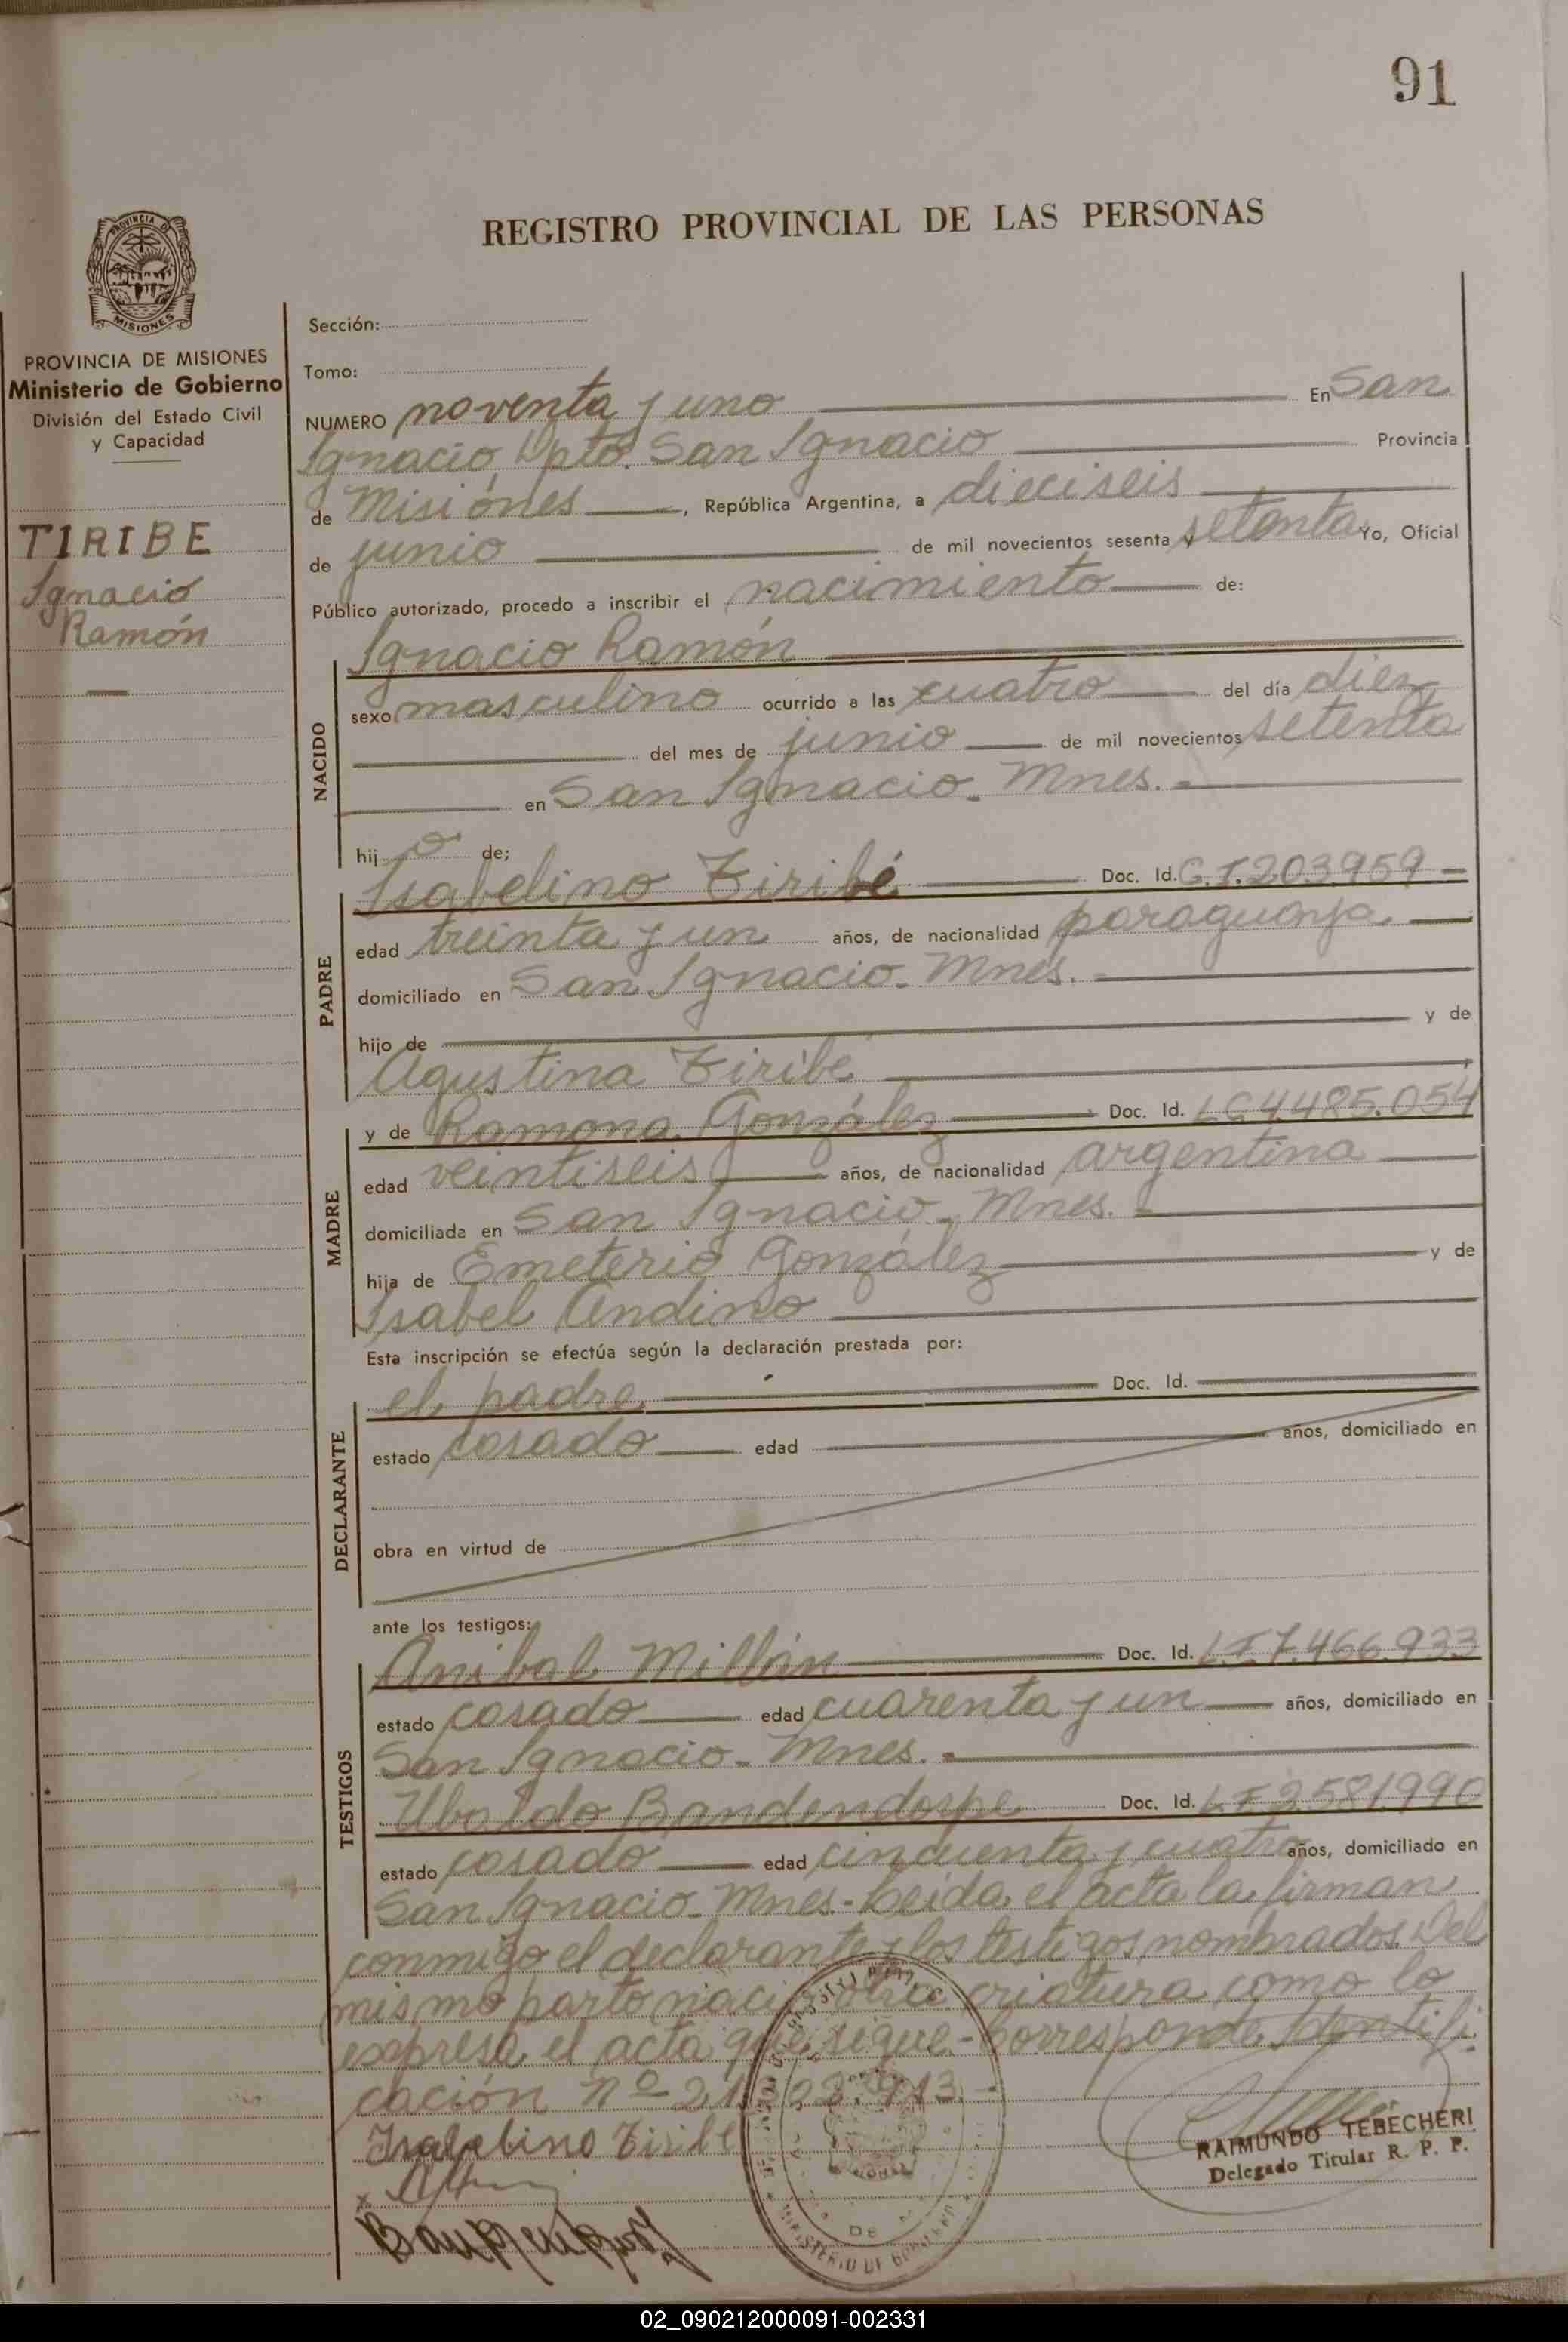 91
REGISTRO PROVINCIAL DE LAS PERSONAS
PROVINCIA DE
MISIONES
PROVINCIA DE MISIONES
Ministerio de Gobierno
División del Estado Civil
y Capacidad
TIRIBE
Ignacio
Ramón
Sección:
Tomo:
NUMERO noventa y uno En San
Ignacio, Dpto. San Ignacio Provincia
de Misiones, República Argentina, a dieciseis
de junio de mil novecientos sesenta y setenta Yo, Oficial
Público autorizado, procedo a inscribir el nacimiento de:
Ignacio Ramón
NACIDO
sexo masculino ocurrido a las cuatro del día diez
del mes de junio de mil novecientos setenta
en San Ignacio - Mnes. -
hijo de;
PADRE
Isabelino Tiribé Doc. Id. C.I. 203.959 -
edad treinta y un años, de nacionalidad paraguaya
domiciliado en San Ignacio - Mnes. -
hijo de y de
Agustina Tiribé
MADRE
y de Ramona González Doc. Id. LC 4.485.054
edad veintiseis años, de nacionalidad argentina
domiciliada en San Ignacio - Mnes. -
hija de Emeterio González y de
Isabel Andino
Esta inscripción se efectúa según la declaración prestada por:
DECLARANTE
el padre Doc. Id.
estado casado edad años, domiciliado en
obra en virtud de
ante los testigos:
TESTIGOS
Anibal Millán Doc. Id. L.E 7.466.933
estado casado edad cuarenta y un años, domiciliado en
San Ignacio - Mnes. -
Ubaldo Bandendorpe Doc. Id. L.E 2.581.990
estado casado edad cincuenta y cuatro años, domiciliado en
San Ignacio - Mnes - Leida el acta la firman
conmigo el declarante y los testigos nombrados. Del
mismo parto nació otra criatura como lo
expresa el acta que sigue. - Corresponde Identifi
cación nº
Isabelino Tiribe
RAIMUNDO TEBECHERI
Delegado Titular R. P. P.
MINISTERIO DE GOBIERNO
02_090212000091-002331